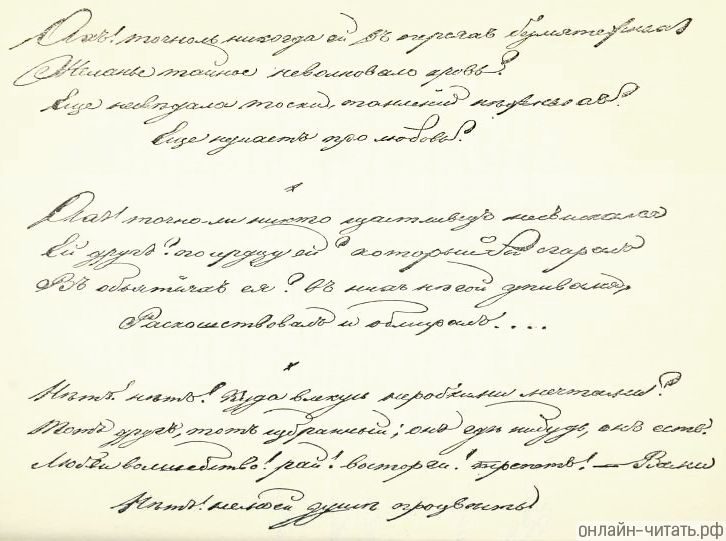 Ахъ! точноль никогда ей въ персяхъ безмятежныхъ
Желанье тайное не волновало кровь?
Еще не свѣдала тоски, томлений нѣжныхъ?
Еще не знаетъ про любовь?
Ахъ! точно ли никто щастливецъ не сыскался
Ей другъ? по сердцу ей? который бы сгаралъ
Въ объятіяхъ ея? въ нихъ нѣгой упивался,
Раскошствовалъ и обмиралъ....
Нѣтъ! нѣтъ! Куда влекусь неробкими мечтами?
Тотъ другъ, тотъ избранный; онъ гдѣ нибудь, онъ есть.
Любви волшебство! рай! восторги! трепетъ! — Вами
Нѣтъ! не моей душѣ процвѣсть!
онлайн-читать.рф